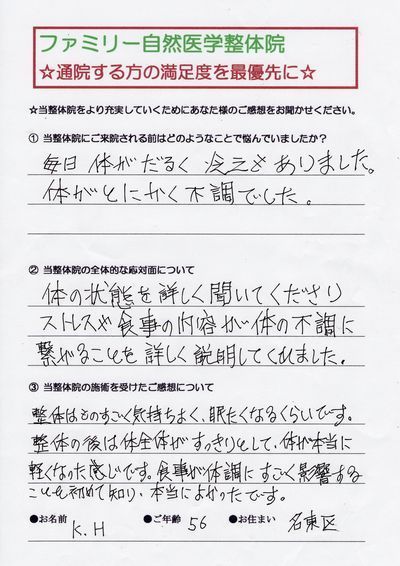 ファミリー自然医学整体院
☆通院する方の満足度を最優先に☆
☆当整体院をより充実していくためにあなた様のご感想をお聞かせください。
① 当整体院にご来院される前はどのようなことで悩んでいましたか？
毎日 体がだるく 冷えもありました。
体がとにかく不調でした。
② 当整体院の全体的な応対面について
体の状態を詳しく聞いてくださり
ストレスや食事の内容が体の不調に
繋がることを詳しく説明してくれました.
③ 当整体院の施術を受けたご感想について
整体はものすごく気持ちよく、眠たくなるくらいです。
整体の後は体全体がすっきりとして、体が本当に
軽くなった感じです。食事が体調にすごく影響する
ことを初めて知り、本当によかったです。
●お名前 K.H ●ご年齢 56 ●お住まい 名東区